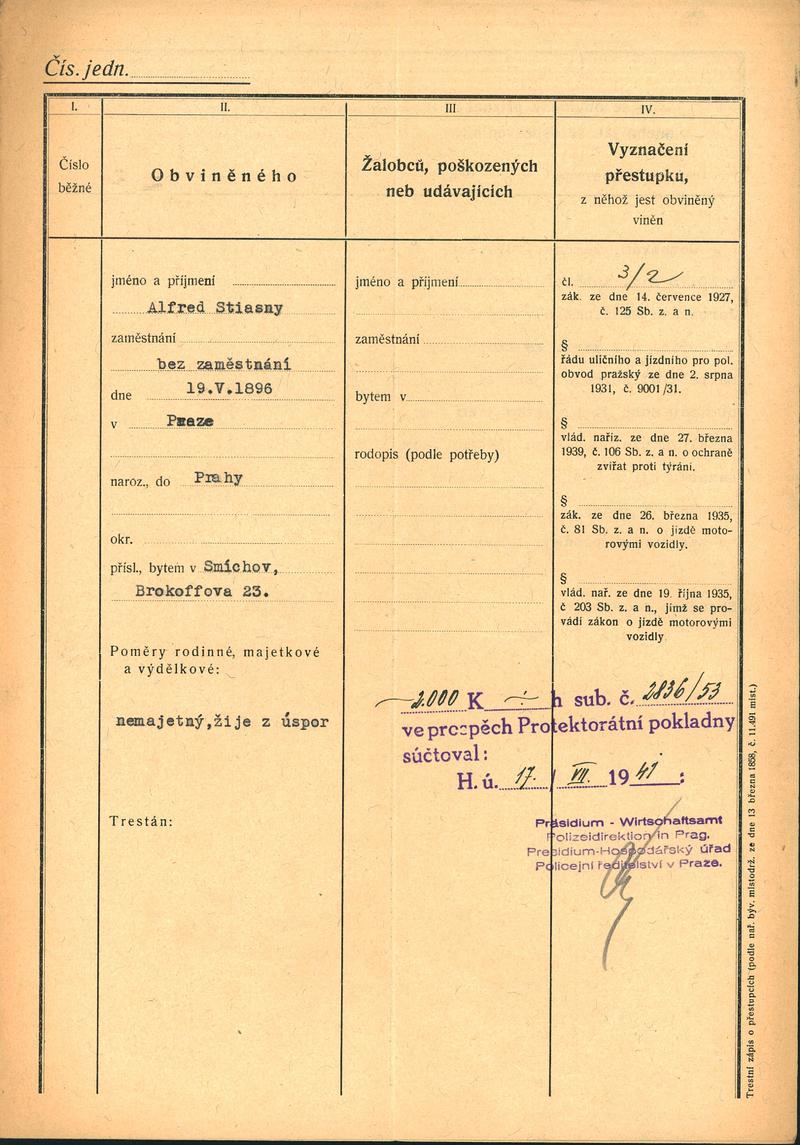 Čís. jedn.
I.
II.
III
IV.
Číslo
běžné
Obviněného
Žalobců, poškozených
neb udávajících
Vyznačení
přestupku,
z něhož jest obviněný
viněn
jméno a příjmení
Alfred Stiasny
zaměstnání
bez zaměstnání
dne 19.V.1896
v Praze
naroz., do Prahy
okr.
přísl., bytem v Smíchov,
Brokoffova 23.
Poměry rodinné, majetkové
a výdělkové:
nemajetný,žije z úspor
Trestán:
jméno a příjmení
zaměstnání
bytem v
rodopis (podle potřeby)
čl. 3/2
zák. ze dne 14. července 1927,
č. 125 Sb. z. a n.
§
řádu uličního a jízdního pro pol.
obvod pražský ze dne 2. srpna
1931, č. 9001/31.
§
vlád. naříz. ze dne 27. března
1939, č. 106 Sb. z. a n. o ochraně
zvířat proti týrání.
§
zák. ze dne 26. března 1935,
č. 81 Sb. z. a n. o jízdě moto-
rovými vozidly.
§
vlád. nař. ze dne 19. října 1935,
č 203 Sb. z. a n., jímž se pro-
vádí zákon o jízdě motorovými
vozidly
2.000 K h sub. č. 2836/53
ve prospěch Protektorátní pokladny
súčtoval:
H. ú. 17. / VII. 1941 :
Präsidium - Wirtschaftsamt
Polizeidirektion in Prag.
Presidium-Hospodářský úřad
Policejní ředitelství v Praze.
Trestní zápis o přestupcích (podle nař. býv. místodrž. ze dne 13 března 1858, č. 11.491 míst.)